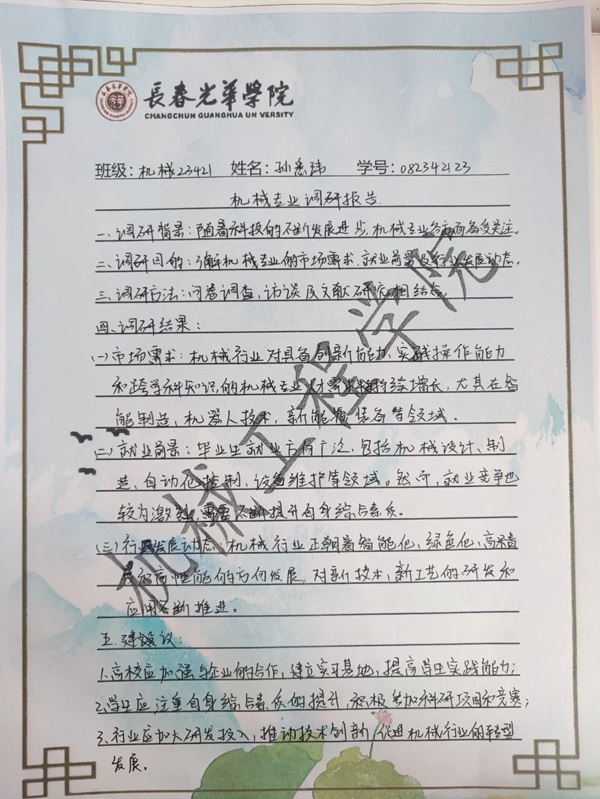 長春光華學院
CHANGCHUN GUANGHUA UN VERSITY
班级：机械23421 姓名：孙悉玮 学号：082342123
机械专业调研报告.
一、调研背景：随着科技的不断发展进步，机械专业各方面备受关注。
二、调研目的：了解机械专业的市场需求、就业前景及行业发展动态。
三、调研方法：问卷调查，访谈及文献研究相结合。
四、调研结果：
(一)市场需求：机械行业对具备创新能力、实践操作能力
和跨学科知识的机械专业人才需求持续增长，尤其在智
能制造，机器人技术，新能源装备等领域．
(二)就业前景：毕业生就业方向广泛，包括机械设计、制
造、自动化控制，设备维护等领域。然而，就业竞争也
较为激烈，需要不断提升自身综合素质。
(三)行业发展动态：机械行业正朝着智能化，绿色化，高质
高性能的方向发展，对新技术，新工艺的研发和
应用不断推进。
五.建议：
1.高校应加强与企业的合作，建立实习基地，提高学生实践能力；
2.学生应注重自身综合素质的提升，积极参加科研项目和竞赛；
3.行业应加大研发投入，推动技术创新，促进机械行业的转型
发展。
机械工程学院